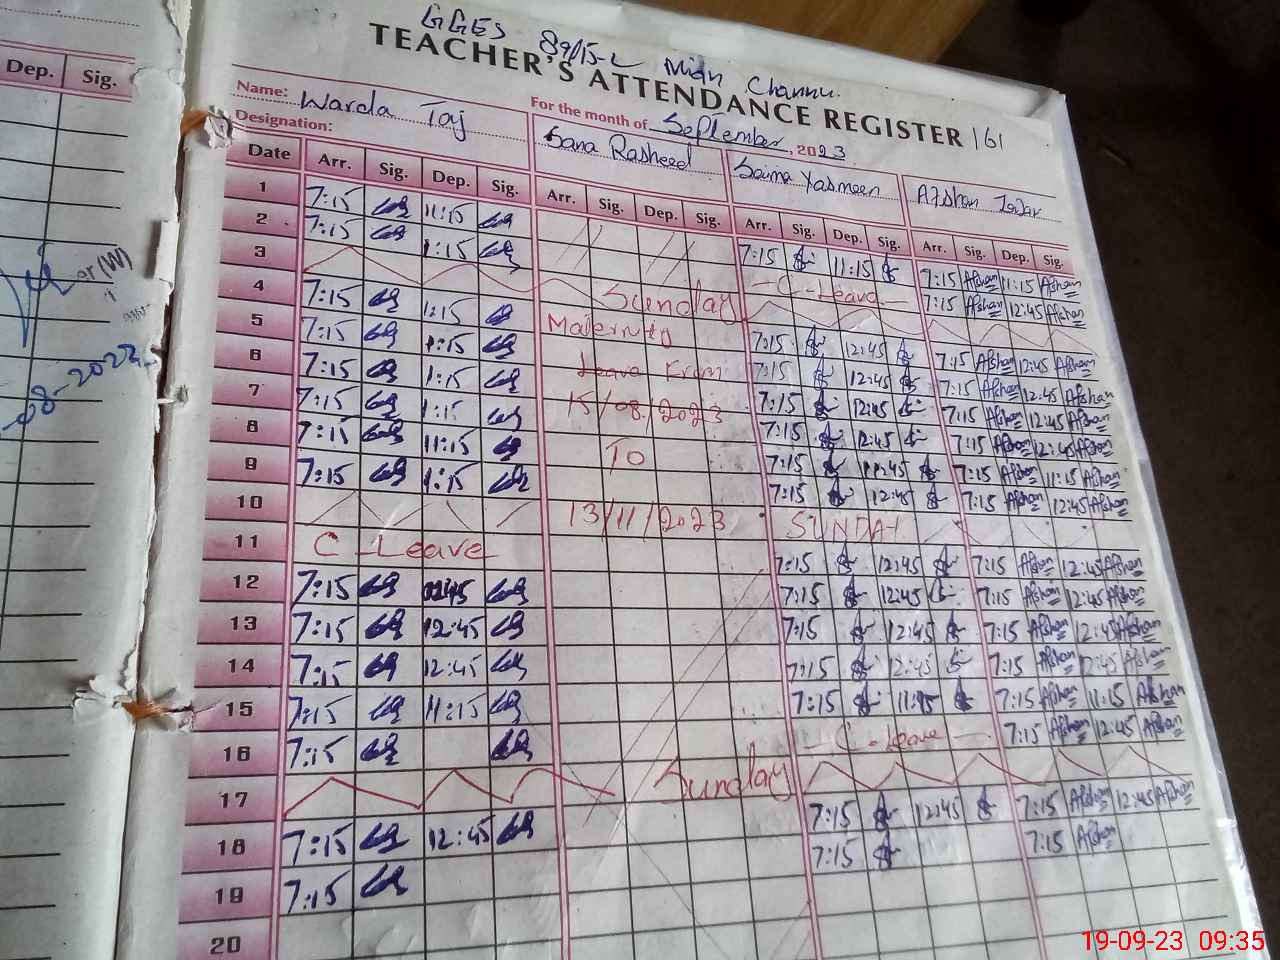 GGES 89/15-L Mian Channu.
TEACHER'S ATTENDANCE REGISTER 161
Dep. Sig.
Name: Warda Taj
For the month of September, 2023
Designation:
Sana Rasheed
Saima Yasmeen
Afshan
Date Arr. Sig. Dep. Sig. Arr. Sig. Dep. Sig. Arr. Sig. Dep. Sig. Arr. Sig. Dep. Sig.
1 7:15 11:15 7:15 11:15 7:15 Afshan 11:15 Afshan
2 7:15 1:15 C-Leave 7:15 Afshan 12:45 Afshan
3 Sunday
4 7:15 1:15 Maternity 7:15 12:45 7:15 Afshan 12:45 Afshan
5 7:15 1:15 Leave From 7:15 12:45 7:15 Afshan 12:45 Afshan
6 7:15 1:15 15/08/2023 7:15 12:45 7:15 Afshan 12:45 Afshan
7 7:15 1:15 7:15 12:45 7:15 Afshan 12:45 Afshan
8 7:15 11:15 TO 7:15 7:15 Afshan 11:15 Afshan
9 7:15 1:15 7:15 12:45 7:15 Afshan 12:45 Afshan
10 13/11/2023 SUNDAY
11 C-Leave 7:15 12:45 7:15 Afshan 12:45 Afshan
12 7:15 7:15 12:45 7:15 Afshan 12:45 Afshan
13 7:15 12:45 7:15 12:45 7:15 Afshan 12:45 Afshan
14 7:15 12:45 7:15 12:45 7:15 Afshan 12:45 Afshan
15 7:15 11:15 7:15 7:15 Afshan 11:15 Afshan
16 7:15 C-Leave 7:15 Afshan 12:45 Afshan
17 Sunday
18 7:15 12:45 7:15 12:45 7:15 Afshan 12:45 Afshan
19 7:15 7:15 7:15 Afshan
20
er(W)
-08-2023
19-09-23 09:35